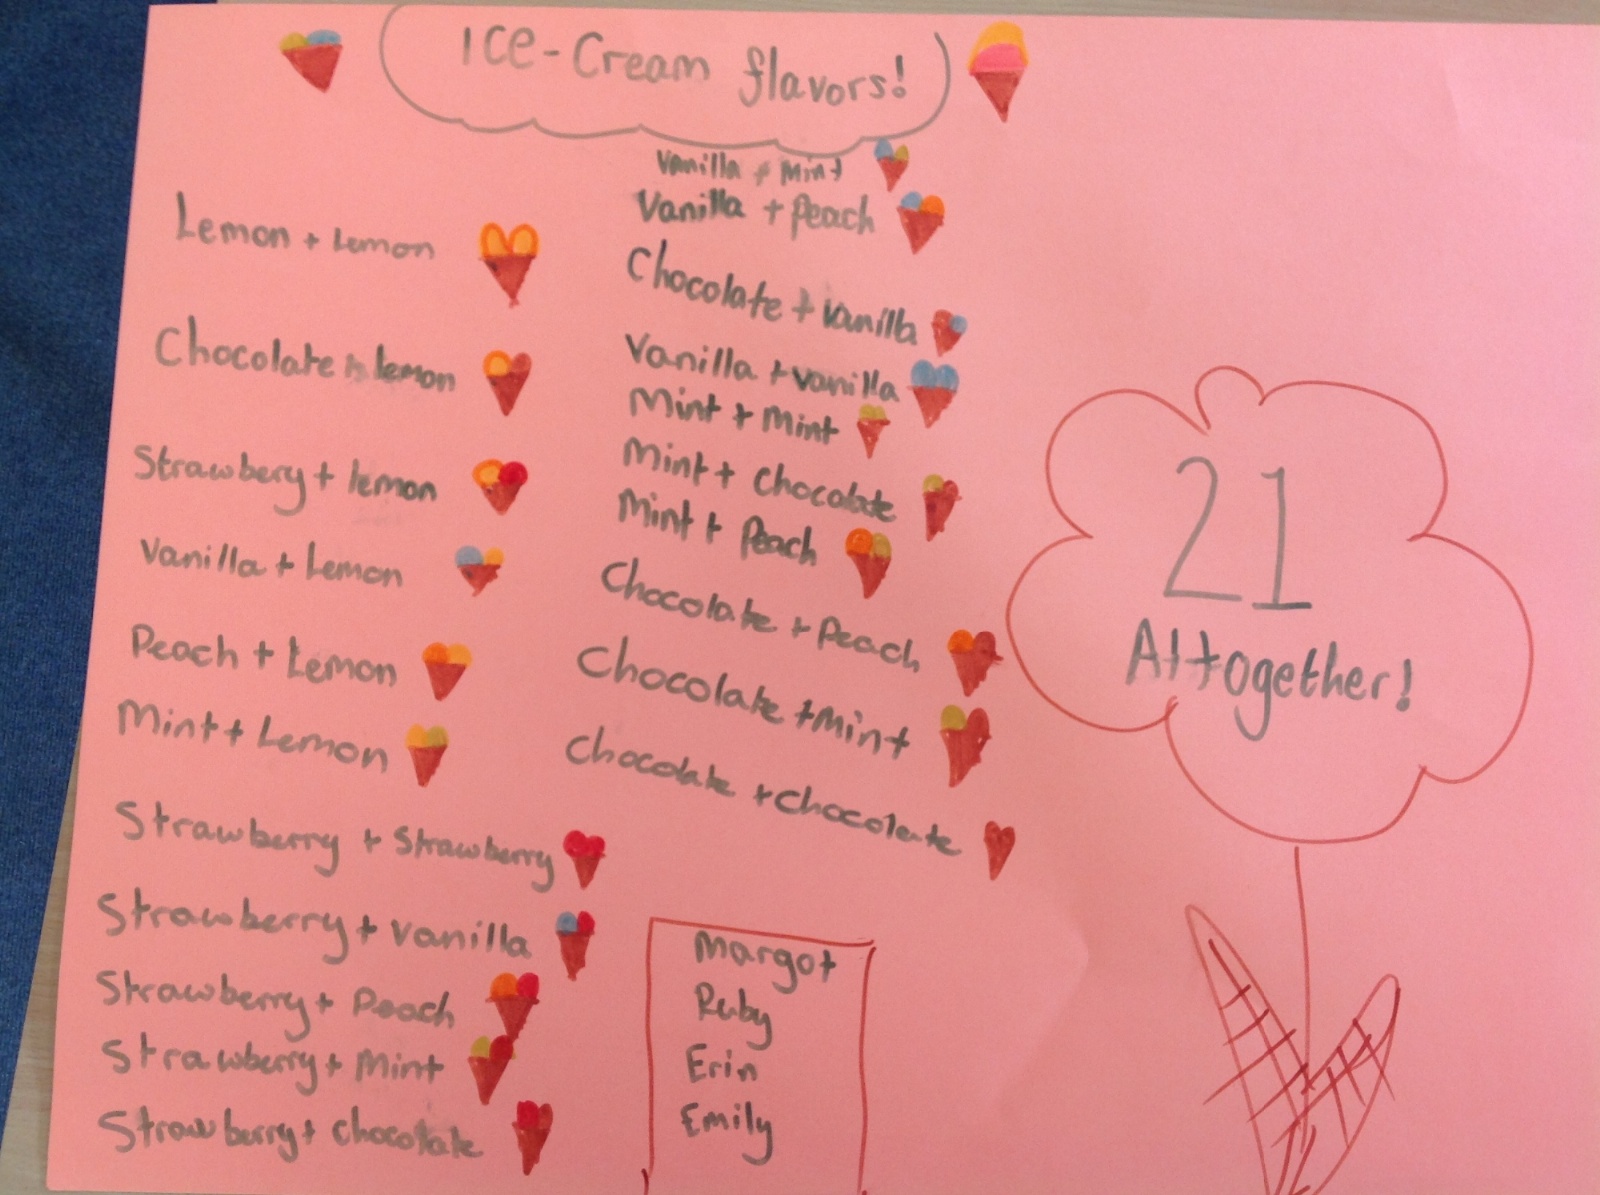 Ice-Cream flavors!
Lemon + Lemon
Chocolate lemon
Strawbery + lemon
Vanilla + Lemon
Peach + Lemon
Mint + Lemon
Strawberry + Strawberry
Strawberry + Vanilla
Strawberry + Peach
Strawberry + Mint
Strawberry + chocolate
Vanilla + Mint
Vanilla + Peach
Chocolate + vanilla
Vanilla + vanilla
Mint + Mint
Mint + Chocolate
Mint + Peach
Chocolate + Peach
Chocolate + Mint
Chocolate + chocolate
21
Altogether!
Margot
Ruby
Erin
Emily